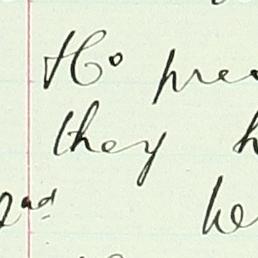 Ho prec
they h
2nd he